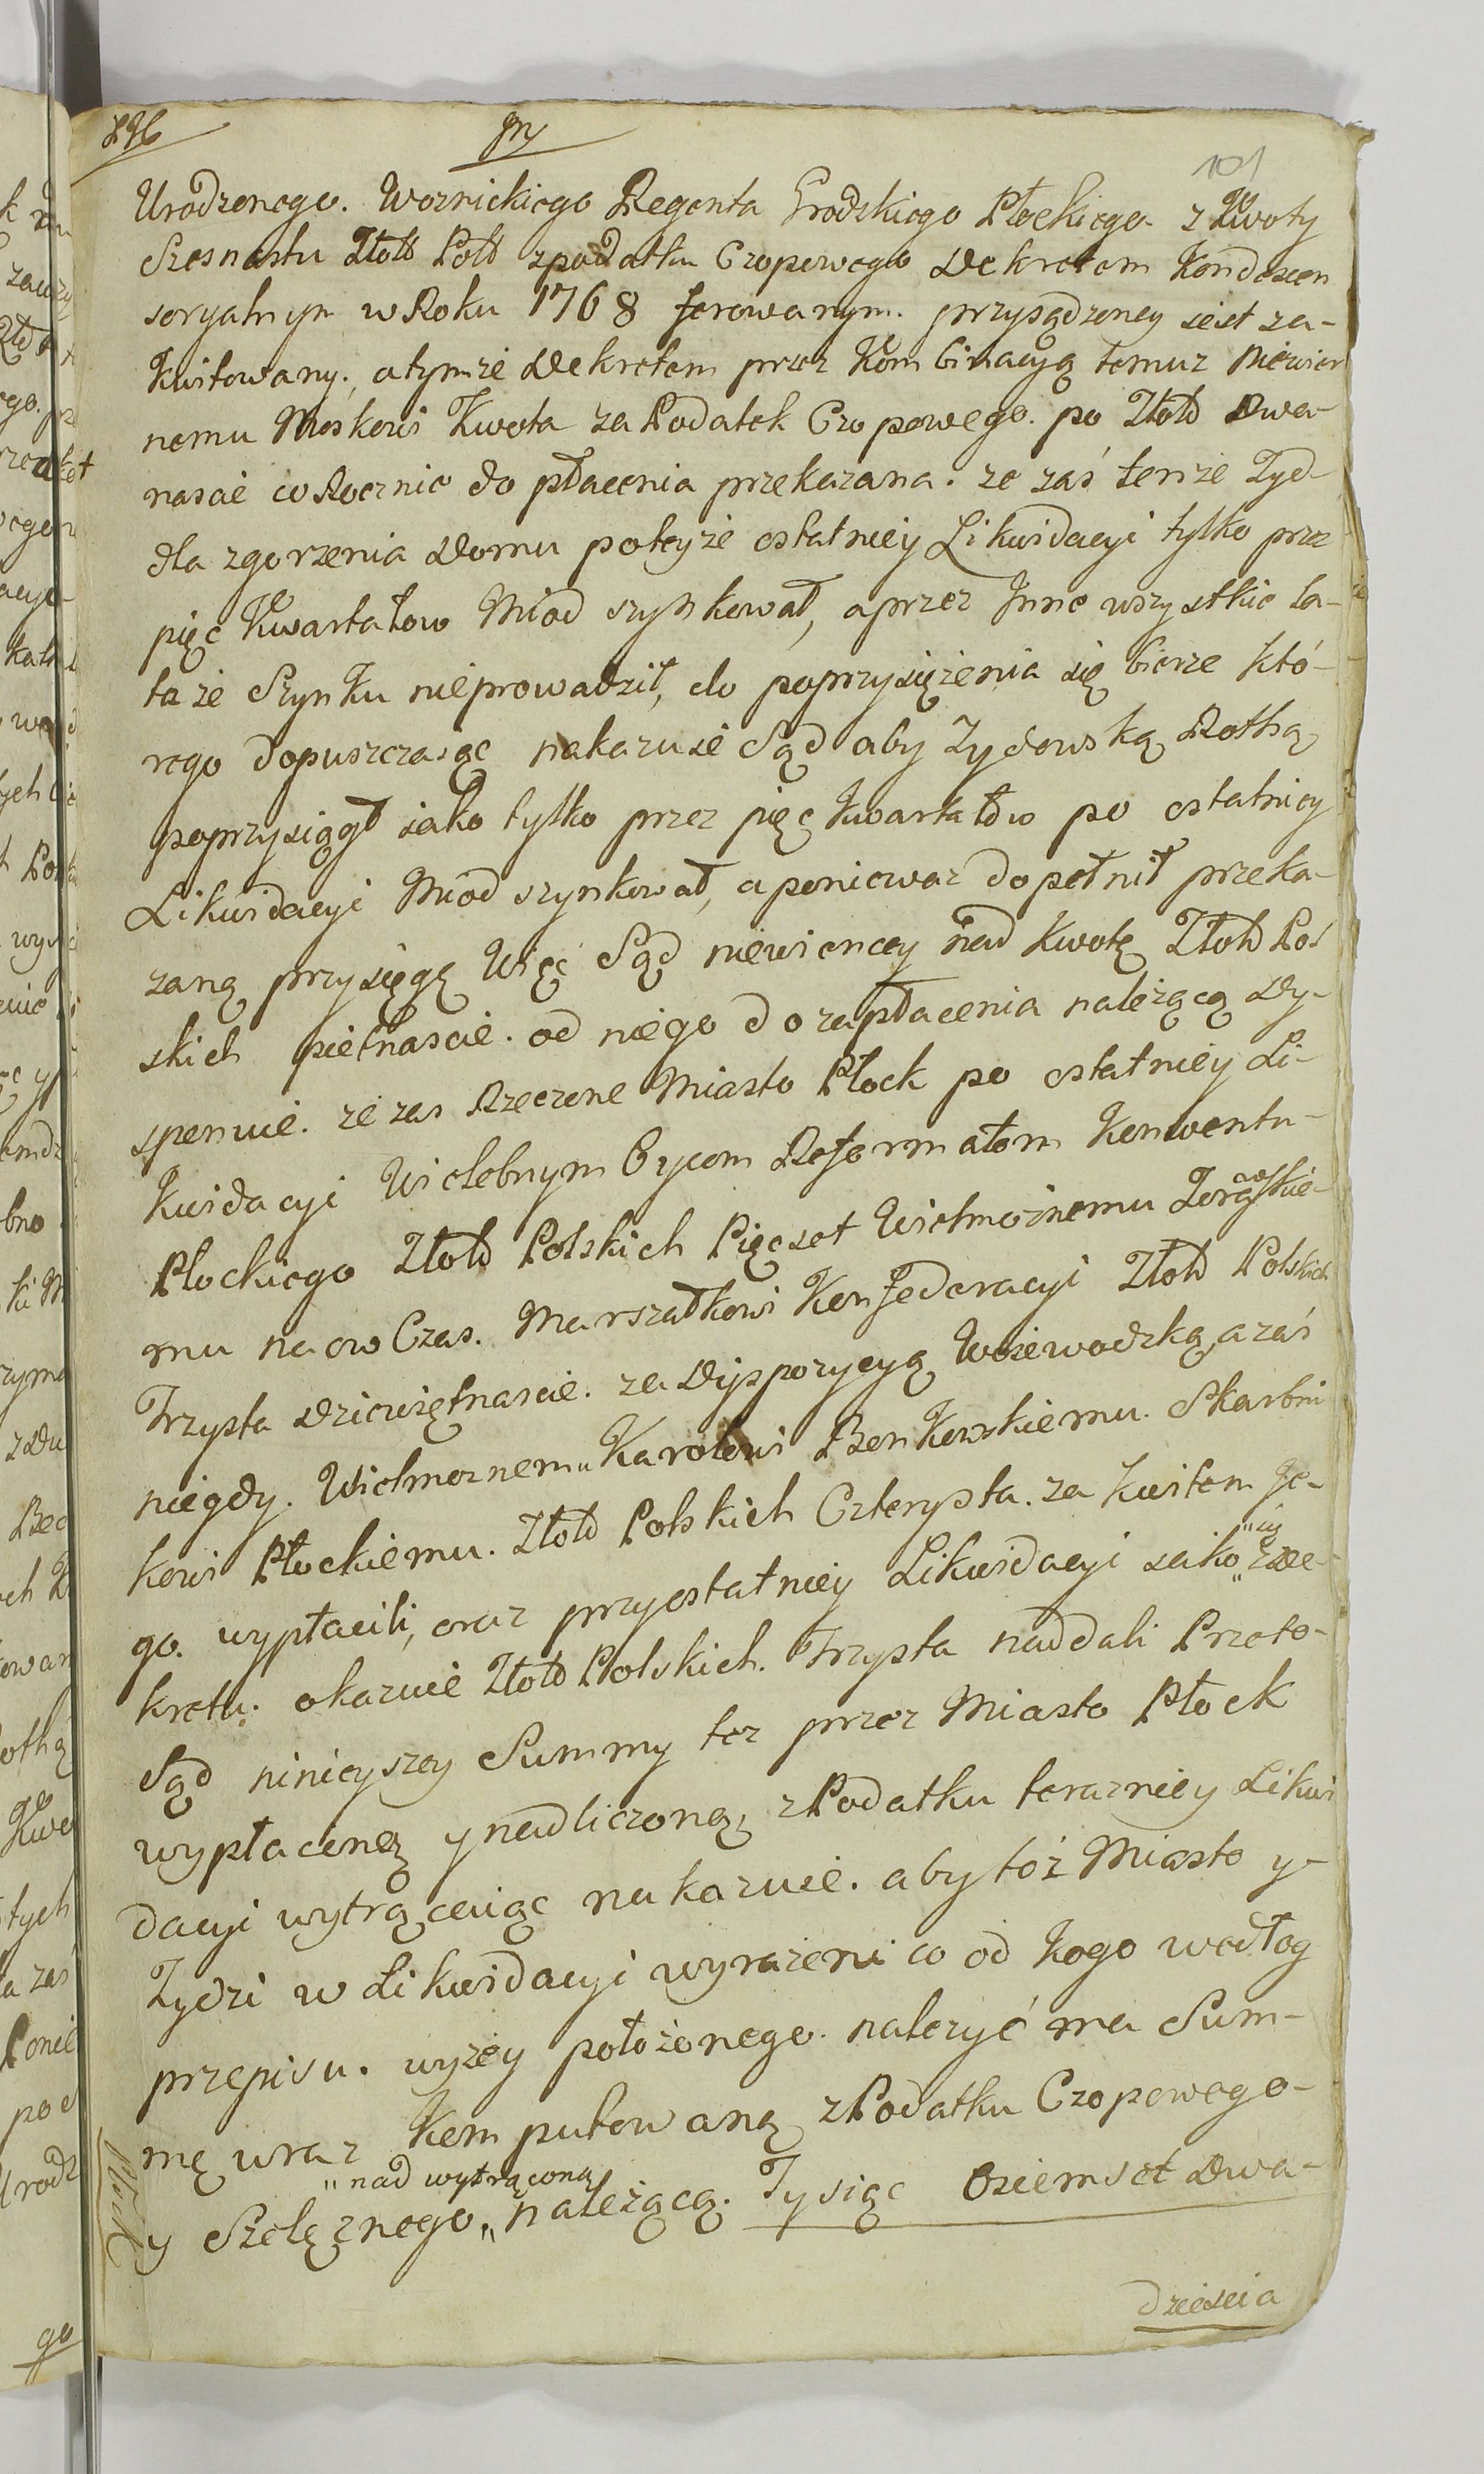 101
Urodzonego. Woznickiego Regenta Grodzkiego Płockiego z Kwoty
Szesnastu Złotd Pold zpodatku Czopowego Dekretem Kondescen
soryalnym w Roku 1768 ferowanym. przysądzoney iest za-
kwitowany, a tymże Dekretem przez Kombinacyą temuz Niewier
nemu Moskowi Kwota za Podatek Czopowego. po Złotd Dwa-
nascie co Rocznie do płacenia przekazana. ze zaś tenże Zyd-
dla zgorzenia Domu poteyże ostatniey Likwidacyi tylko przez
pięc Kwartałow Miod szynkował, aprzez Inne wszystkie la-
ta że Szynku nieprowadził, do poprzysiężenia się bierze któ-
rego dopuszczaiąc nakazuie Sąd aby Zydowską Rothą
poprzysiągł iako tylko przez pięc kwartałow po ostatniey
Likwidacyi Miod szynkował, aponiewaz dopełnił przeka-
zaną przysięgę Więć Sąd niewiencey nad Kwotę Złotd Pol
skich pietnascie. od niego do zapłacenia należącą Dy-
spenuie. ze zas Rzeczone Miasto Płock po ostatniey Li-
kwidacyi Wielebnym Oycom Reformatom Konwentu-
Płockiego Złotd Polskich Pięcset Wielmożnemu
mu na ow Czas. Marszałkowi Konfederacyi Złotd Polskich
Trzysta Dziewiętnascie. za Dyspozycyą Woiewodzką, a zaś
niegdy. Wielmoznemu Karolowi Bonkowskiemu. Skarbni
kowi Płockiemu. Złotd Polskich Czterysta. za kwitem Je-
go. wypłacili, oraz przyostatniey Likwidacyi iako „się„ zDe-
kretu. okazuie Złotd Polskich. Trzysta naddali Przeto-
Sąd ninieyszey Summy tez przez Miasto Płock
wypłaconą y nadliczoną, z Podatku terazniey Likwi
dacyi wytrąceiąc nakazuie. aby toż Miasto y-
Zydzi w Likwidacyi wyrażeni co od kogo wedłog
przepisu. wyzey położonego. nalezyć ma Sum-
mę wraz Komputowaną z Podatku Czopowego-
„nad wytrąconą
y Szelęznego „należącą. Tysiąc Osiemset Dwa-
dziescia